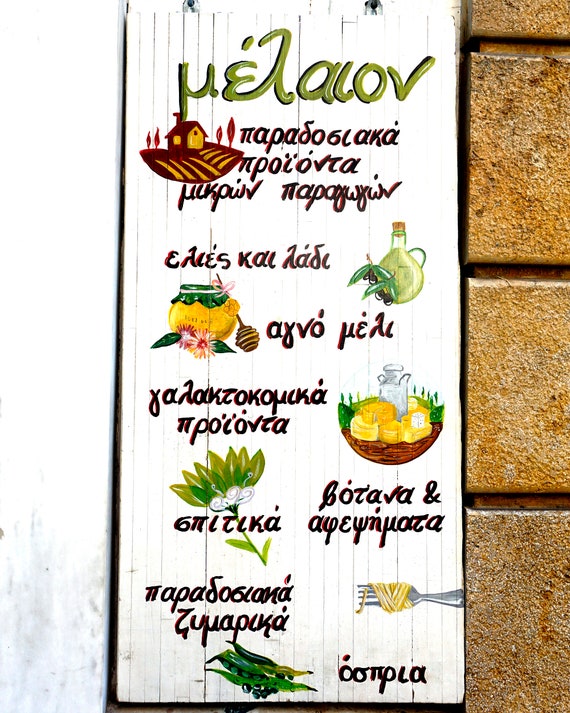 μέλαιον
παραδοσιακά
προϊόντα
μικρών παραγωγών
ελιές και λάδι
αγνό μέλι
γαλακτοκομικά
προϊόντα
βότανα &
σπιτικά αφεψήματα
παραδοσιακά
ζυμαρικά
όσπρια